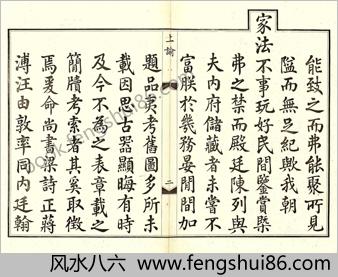 能致之而弗能聚所見
隘而無足紀歟我朝
家法不事玩好民間鑑賞槩
弗之禁而殿廷陳列與
夫内府儲藏者未嘗不
富朕於幾務晏閒間加
上諭
二
題品裒考舊圖多所未
載因思古器顯晦有時
及今不爲之表章載之
簡牘考索者其奚取徵
焉爰命尚書梁詩正蔣
溥汪由敦率同内廷翰
book.fengshui86.com
风水八六 www.fengshui86.com